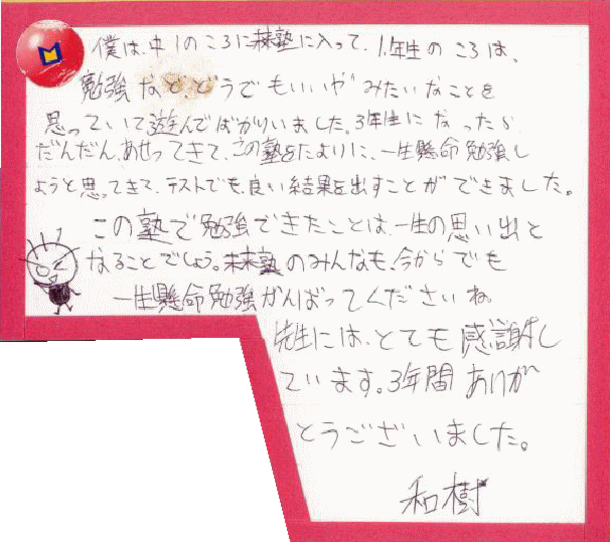 僕は、中1のころに未来塾に入って、1年生のころは、
勉強など、どうでもいいやみたいなことを
思っていて遊んでばかりいました。3年生になったら
だんだん、あせってきて、この塾をたよりに、一生懸命勉強し
ようと思ってきて、テストでも、良い結果を出すことができました。
この塾で勉強できたことは、一生の思い出と
なることでしょう。未来塾のみんなも、今からでも
一生懸命勉強がんばってくださいね。
先生には、とても感謝し
ています。3年間ありが
とうございました。
和樹